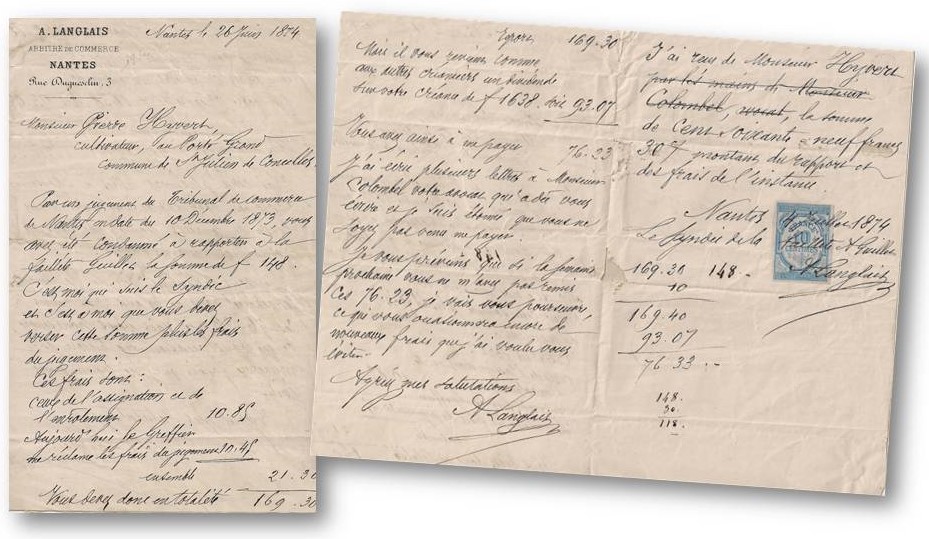 A. LANGLAIS
ARBITRE DE COMMERCE
NANTES
Rue Duguesclin, 3
Nantes le 26 Juin 1874
Monsieur Pierre Hyvert,
cultivateur, au Porte Grand
Commune de St Julien de Concelles
Par un jugement du Tribunal de commerce
de Nantes en date du 10 Décembre 1873, vous
avez été condamné à rapporter à la
faillite la somme de f 148.
C'est moi qui suis le Syndic
et c'est à moi que vous devez
verser cette somme plus les frais
du jugement.
Ces frais sont :
ceux de l'assignation et de
l'enrolement 10.85
Aujourd'hui le Greffier
me réclame les frais du jugement 10.45
ensemble 21.30
Vous devez donc en totalité 169.30
Report 169.30
Mais il vous revient comme
aux autres créanciers un dividende
sur votre créance de f 1638. soit 93.07
Vous avez ainsi à me payer 76.23
J'ai écrit plusieurs lettres à Monsieur
Colombel votre avocat qui a dû vous
écrire et je suis étonné que vous ne
soyez pas venu me payer.
Je vous préviens que si la semaine
prochaine vous ne m'avez pas remis
ces 76.23, je vais vous poursuivre,
ce qui vous occasionnera encore de
nouveaux frais que j'ai voulu vous
éviter.
Agréez mes salutations
A Langlais
J'ai reçu de Monsieur Hyvert
par les mains de Monsieur
Colombel, avocat, la somme
de Cent soixante-neuf francs
30 montant du rapport et
des frais de l'instance
Nantes Juillet 1874
Le Syndic de la faillite
A Langlais
10
169.30 148.
10
169.40
93.07
76.33
148.
30
118.